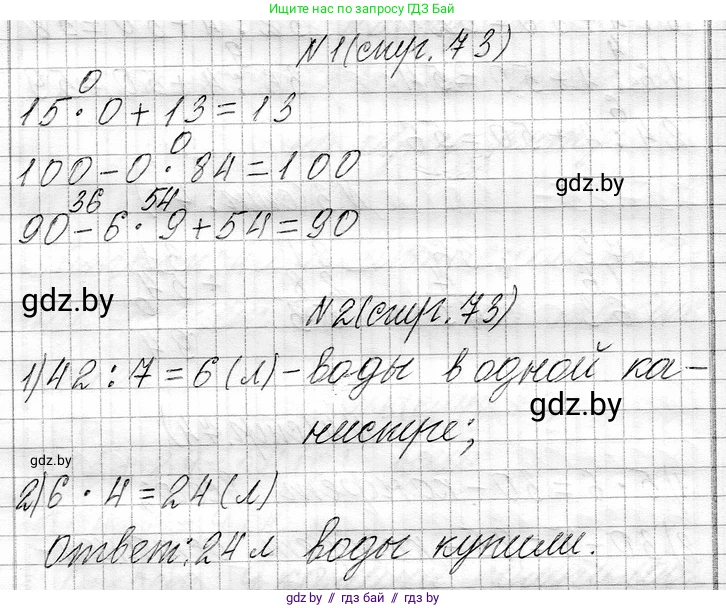 Ищите нас по запросу ГДЗ БАЙ
N1(стр. 73)
0
15·0+13=13
0
100-0·84=100
36 54
90-6·9+54=90
gdz.by
gdz.by
N2(стр. 73)
1)42:7=6(л)-воды в одной ка-
нистре;
gdz.by
gdz.by
2)6·4=24(л)
Ответ: 24 л воды купили.
gdz.by // гдз бай // gdz.by